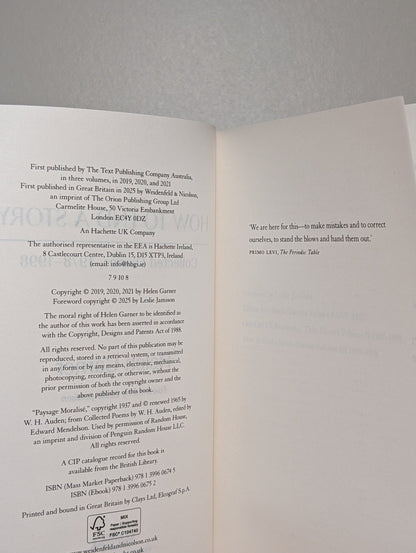 First published by The Text Publishing Company Australia,
in three volumes, in 2019, 2020, and 2021
First published in Great Britain in 2025 by Weidenfeld & Nicolson,
an imprint of The Orion Publishing Group Ltd
Carmelite House, 50 Victoria Embankment
London EC4Y 0DZ
An Hachette UK Company
The authorised representative in the EEA is Hachette Ireland,
8 Castlecourt Centre, Dublin 15, D15 XTP3, Ireland
(email: info@hbgi.ie)
7 9 10 8
Copyright © 2019, 2020, 2021 by Helen Garner
Foreword copyright © 2025 by Leslie Jamison
The moral right of Helen Garner to be identified as
the author of this work has been asserted in accordance
with the Copyright, Designs and Patents Act of 1988.
All rights reserved. No part of this publication may be
reproduced, stored in a retrieval system, or transmitted
in any form or by any means, electronic, mechanical,
photocopying, recording, or otherwise, without the
prior permission of both the copyright owner and the
above publisher of this book.
"Paysage Moralisé," copyright 1937 and © renewed 1965 by
W. H. Auden; from Collected Poems by W. H. Auden, edited by
Edward Mendelson. Used by permission of Random House,
an imprint and division of Penguin Random House LLC.
All rights reserved.
A CIP catalogue record for this book is
available from the British Library.
ISBN (Mass Market Paperback) 978 1 3996 0674 5
ISBN (Ebook) 978 1 3996 0675 2
Printed and bound in Great Britain by Clays Ltd, Elcograf S.p.A.
FSC
MIX
Paper | Supporting
responsible forestry
FSC® C104740
www.weidenfeldandnicolson.co.uk
'We are here for this—to make mistakes and to correct
ourselves, to stand the blows and hand them out.'
PRIMO LEVI, The Periodic Table